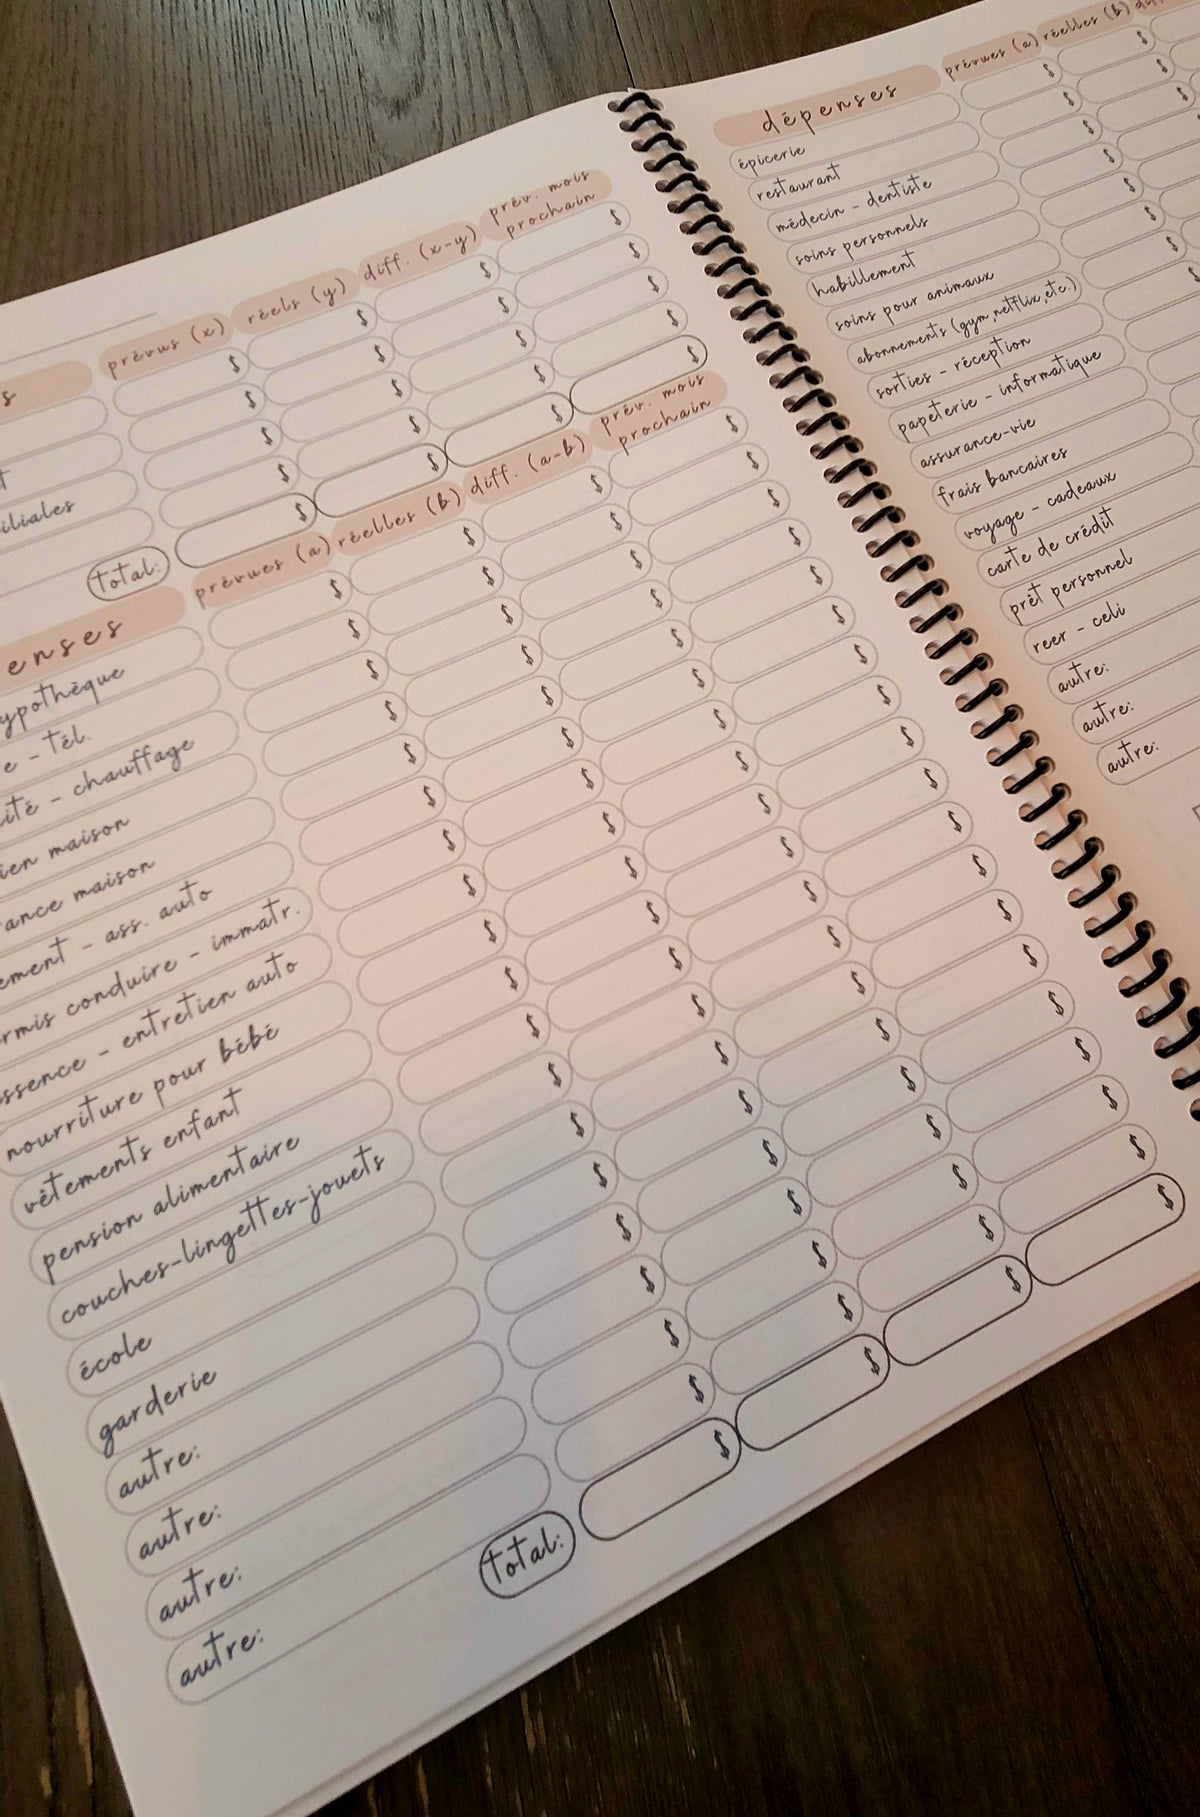 prévus (x) réels (y) diff. (x-y) prév. mois prochain
$ $ $ $
$ $ $ $
$ $ $ $
$ $ $ $
total: $ $ $ $
prévues (a) réelles (b) diff. (a-b) prév. mois prochain
$ $ $ $
- tél. $ $ $ $
- chauffage $ $ $ $
maison $ $ $ $
maison $ $ $ $
- ass. auto $ $ $ $
conduire - immatr. $ $ $ $
- entretien auto $ $ $ $
nourriture pour bébé $ $ $ $
vêtements enfant $ $ $ $
pension alimentaire $ $ $ $
couches-lingettes-jouets $ $ $ $
école $ $ $ $
garderie $ $ $ $
autre: $ $ $ $
autre: $ $ $ $
autre: $ $ $ $
autre: $ $ $ $
total: $ $ $ $
dépenses prévues (a) réelles (b)
épicerie $ $
restaurant $ $
médecin - dentiste $ $
soins personnels $ $
habillement $ $
soins pour animaux $
abonnements (gym, netflix, etc.) $
sorties - réception
papeterie - informatique
assurance-vie
frais bancaires
voyage - cadeaux
carte de crédit
prêt personnel
reer - celi
autre:
autre:
autre: